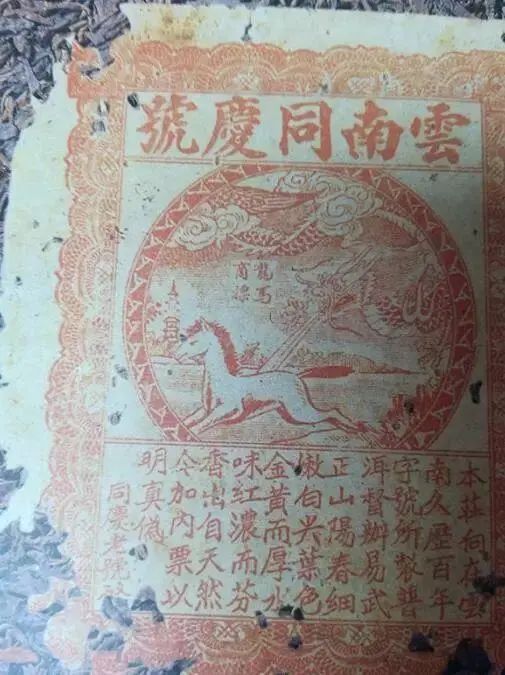 雲南同慶號
龍馬
商標
本莊向在雲
南久歷百年
字號所製普
洱督辦易武
正山陽春細
嫩白尖葉色
金黃而厚水
味紅濃而芬
香出自天然
今加內票以
明真偽
同慶老號